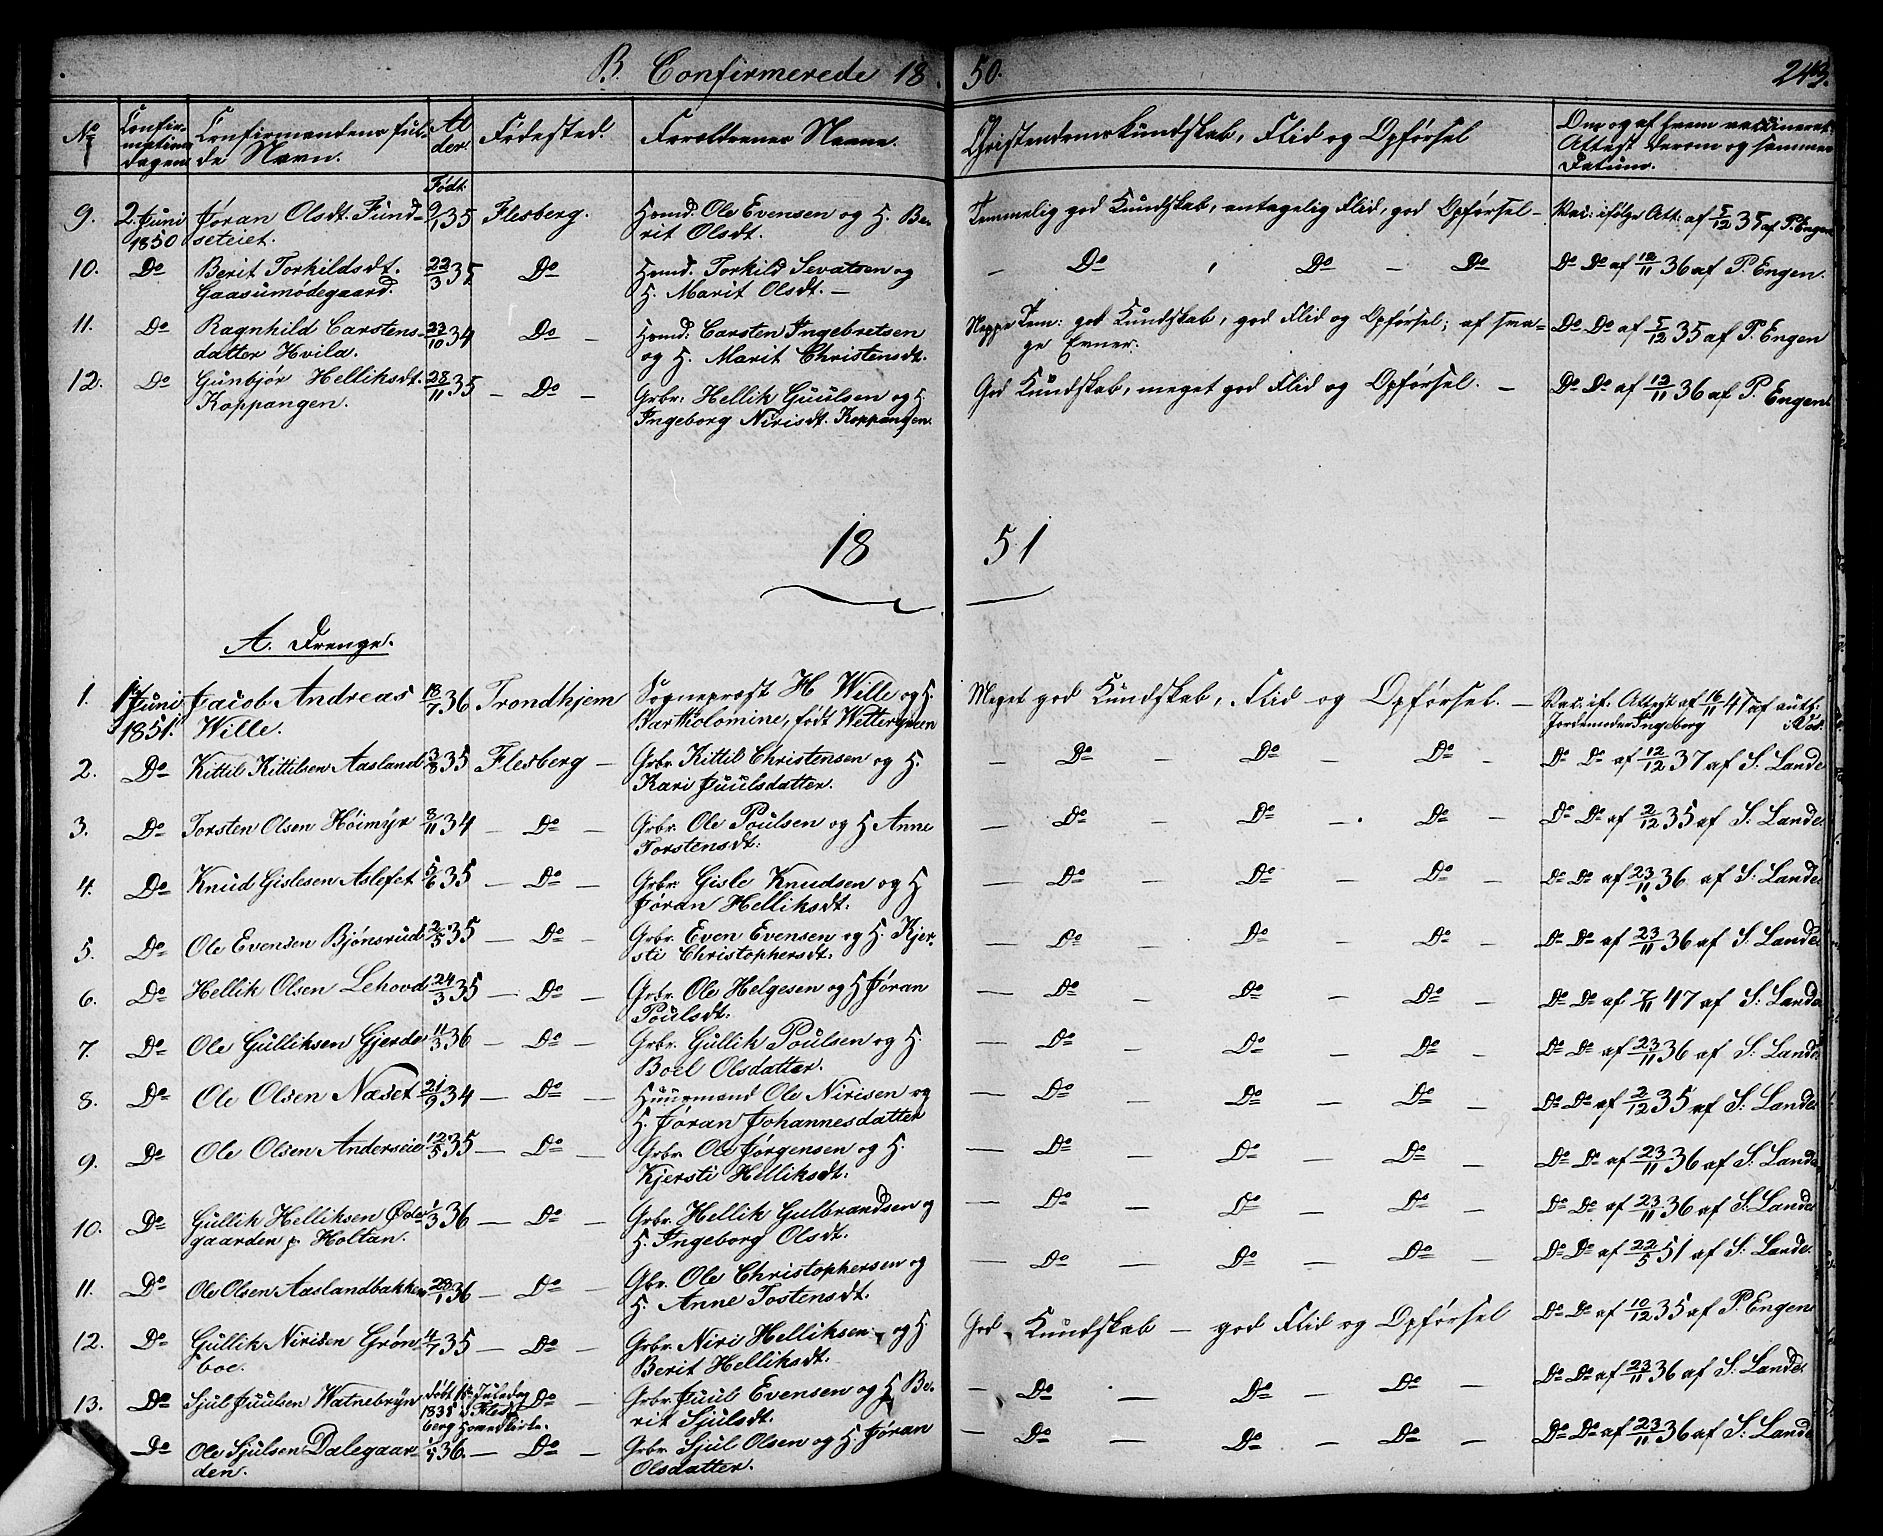 B. Confirmerede 18 50. 243.
No Confirmations dagen Confirmandens fulde Navn. Alder. Fødested. Forældrenes Navne. Christendomskundskab, Flid og Opførsel Om og af hvem vaccineret, Attest derom og sammes Datum.
Født
9. 2. Juni 1850 Jøran Olsdt. Fundseteiet. 9/1 35 Flesberg. Hsmd. Ole Evensen og H. Berit Olsdt. Temmelig god Kundskab, antagelig Flid, god Opførsel – Vac: ifølge Att: af 5/12 35 af P. Engen
10. Do Berit Torkildsdt. Gaasumødegaard. 22/3 35 Do Hsmd. Torkild Sevatsen og H. Marit Olsdt. – – Do Do – Do Do Do af 12/11 36 af P. Engen.
11. Do Ragnhild Carstensdatter Hvila. 27/10 34 Do – Hsmd. Carsten Ingebretsen og H. Marit Christensdt. Neppe Tem: god Kundskab, god Flid og Opførsel; af svage Evner. Do Do af 5/12 35 af P. Engen
12. Do Gunbjør Helliksdt. Koppangen. 28/11 35 – Do – Grbr. Hellik Guulsen og H. Ingeborg Nirisdt. Koppangen. God Kundskab, meget god Flid og Opførsel. – Do Do af 12/11 36 af P. Engen.
18 51
A. Drenge.
1. 1 Juni 1851. Jacob Andreas Wille. 18/7 36 Trondhjem Sognepræst H Wille og H. Bartholomine, født Wettergreen Meget god Kundskab, Flid og Opførsel. – Vac: if. Attest af 16/11 47 af auth: Jordemoder Ingeborg
2. Do Kittil Kittilsen Aasland 3/8 35 Flesberg – Grbr. Kittil Christensen og H. Kari Juulsdatter. – Do – Do – Do – Do Do af 12/12 37 af S. Lande
3. Do Torsten Olsen Høimyr 3/11 34 – Do – Grbr. Ole Poulsen og H Anne Torstensdt: – Do – Do – Do – Do Do af 2/12 35 af S. Lande.
4. Do Knud Gislesen Aslefet 5/6 35 – Do – Grbr. Gisle Knudsen og H Jøran Helliksdt. – Do – Do – Do – Do Do af 23/11 36 af S. Lande
5. Do Ole Evensen Bjønsrud 2/5 35 – Do – Grbr. Even Evensen og H. Kjersti Christophersdt: – Do – Do – Do – Do Do af 23/11 36 af S. Lande
6. Do Hellik Olsen Lehovd 24/3 35 – Do – Grbr. Ole Helgesen og H Jøran Poulsdt. – Do – Do – Do – Do Do af 7/11 47 af S. Lande
7. Do Ole Gulliksen Gjerde 11/3 36 – Do – Grbr. Gullik Poulsen og H. Boel Olsdatter. – Do – Do – Do – Do Do af 23/11 36 af S. Lande
8. Do Ole Olsen Næset 21/9 34 – Do – Huusmand Ole Nirisen og H. Jøran Johannesdatter – Do – Do – Do – Do Do af 2/12 35 af S. Lande
9. Do Ole Olsen Anderseie 12/5 35 – Do – Grbr. Ole Jørgensen og H. Kjersti Helliksdt: – Do – Do – Do – Do Do af 23/11 36 af S. Lande
10. Do Gullik Helliksen Ødegaarden p Holtan. 1/3 36 – Do – Grbr. Hellik Gulbrandsen og H. Ingeborg Olsdt. – Do – Do – Do – Do Do af 23/11 36 af S. Lande
11. Do Ole Olsen Aaslandbakken 29/1 36 – Do – Gbr. Ole Christophersen og H. Anne Tostensdt. – Do – Do – Do – Do Do af 22/5 51 af S. Lande.
12. Do Gullik Nirisen Grønboe. 4/7 35 – Do – Grbr. Niri Helliksen og H. Berit Helliksdt. God Kundskab – god Flid og Opførsel Do Do af 10/12 35 af P. Engen
13. Do Sjul Juulsen Watnebryn født 1ste Juledag 1835 i Flesberg Hovedkirke. Do – Grbr. Juul Evensen og H Berit Sjulsdt. – Do – Do – Do – Do Do af 23/11 36 af S. Lande
Do Ole Sjulsen Dalegaarden. 1/4 36. – Do – Grbr. Sjul Olsen og H. Jøran Olsdatter. – Do – Do – Do – Do Do af 23/11 36 af S. Lande